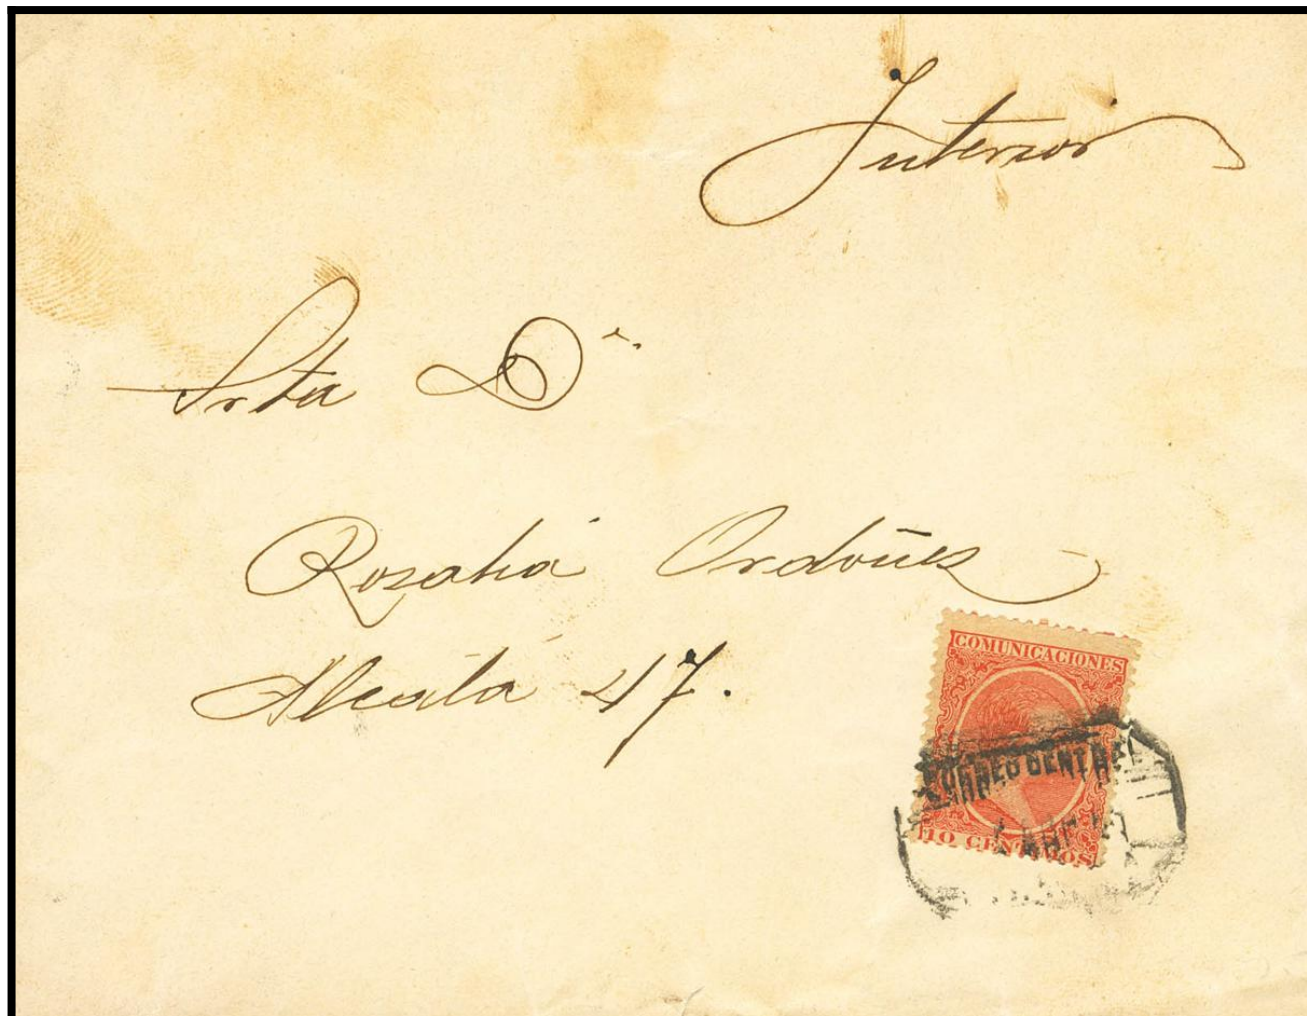 Interior
Srta Dª
Rosalia Ordoñez
Alcala 47.
COMUNICACIONES
CORREO CENTRAL
10 CENTIMOS